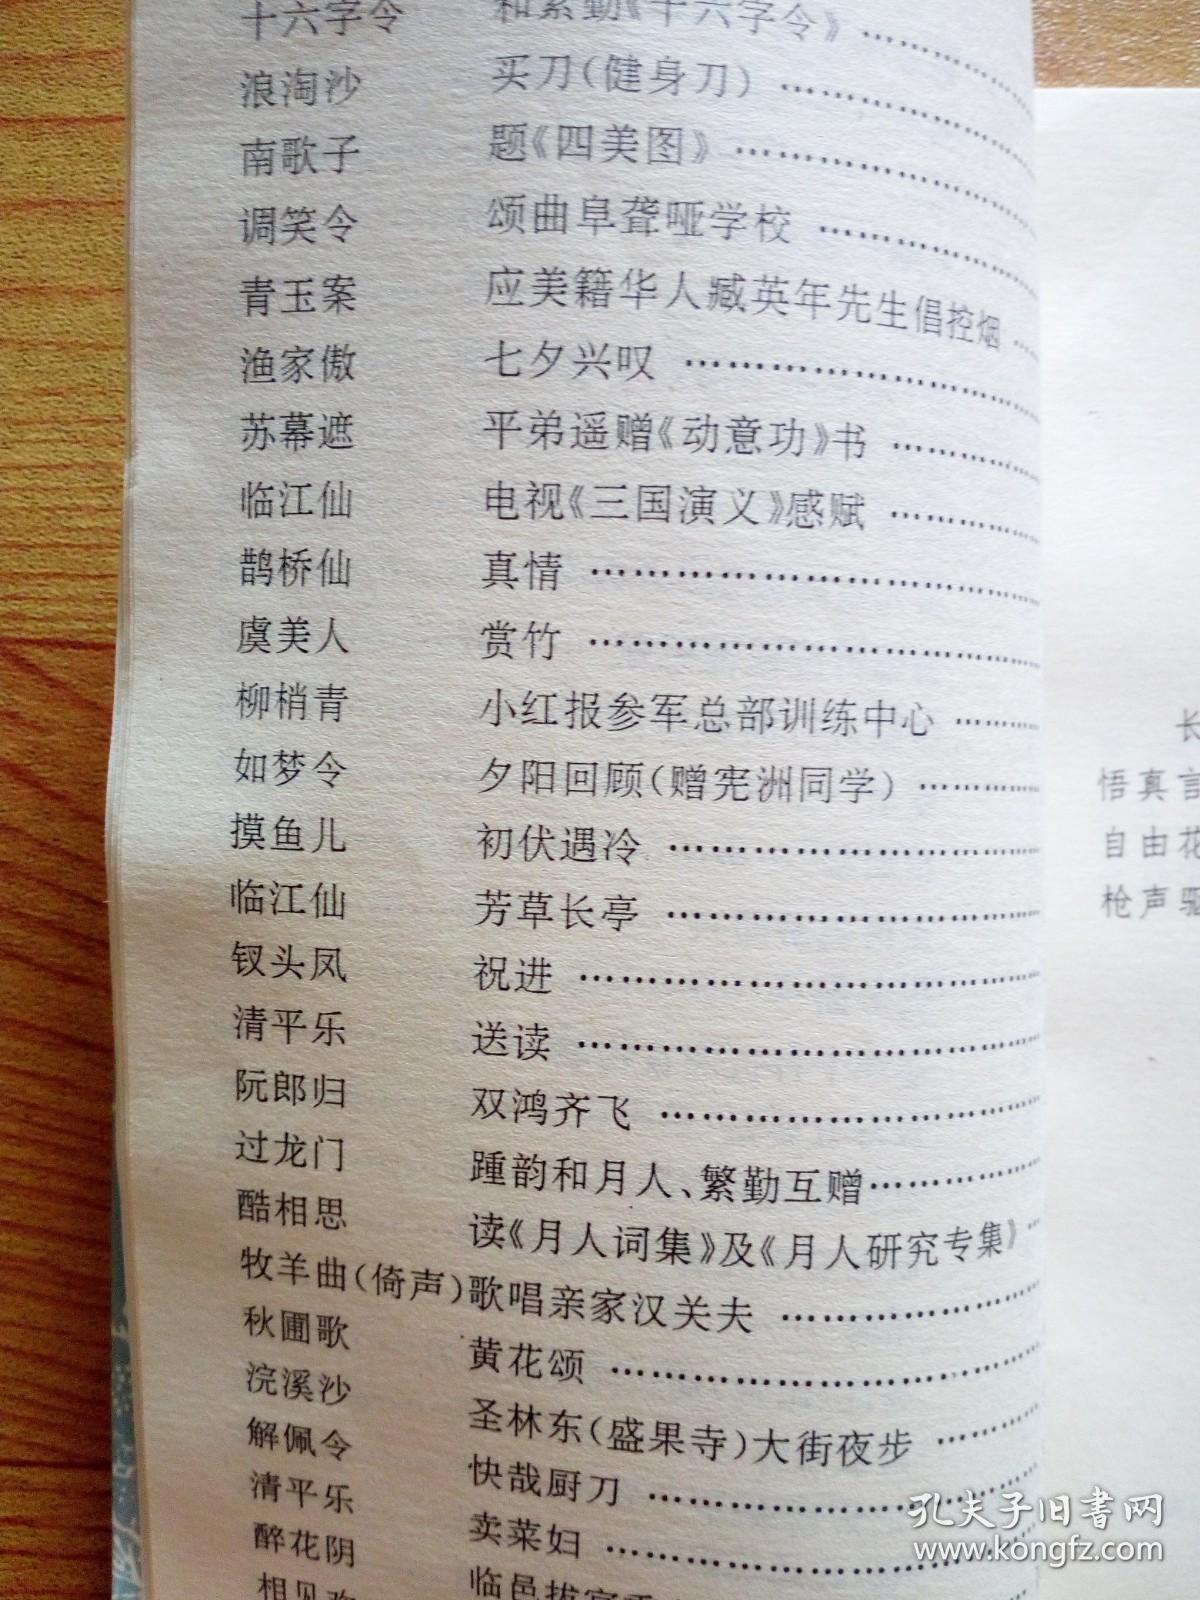 十六字令 和繁勤《十六字令》……………
浪淘沙 买刀（健身刀）……………
南歌子 题《四美图》……………
调笑令 颂曲阜聋哑学校……………
青玉案 应美籍华人臧英年先生倡控烟……
渔家傲 七夕兴叹……………
苏幕遮 平弟遥赠《动意功》书……………
临江仙 电视《三国演义》感赋……………
鹊桥仙 真情……………
虞美人 赏竹……………
柳梢青 小红报参军总部训练中心………
如梦令 夕阳回顾（赠宪洲同学）………
摸鱼儿 初伏遇冷……………
临江仙 芳草长亭……………
钗头凤 祝进……………
清平乐 送读……………
阮郎归 双鸿齐飞……………
过龙门 踵韵和月人、繁勤互赠……………
酷相思 读《月人词集》及《月人研究专集》…
牧羊曲（倚声）歌唱亲家汉关夫……………
秋圃歌 黄花颂……………
浣溪沙 圣林东（盛果寺）大街夜步………
解佩令 快哉厨刀……………
清平乐 卖菜妇……………
醉花阴 临邑拔
相见
长
悟真言
自由花
枪声驱
孔夫子旧书网
www.kongfz.com